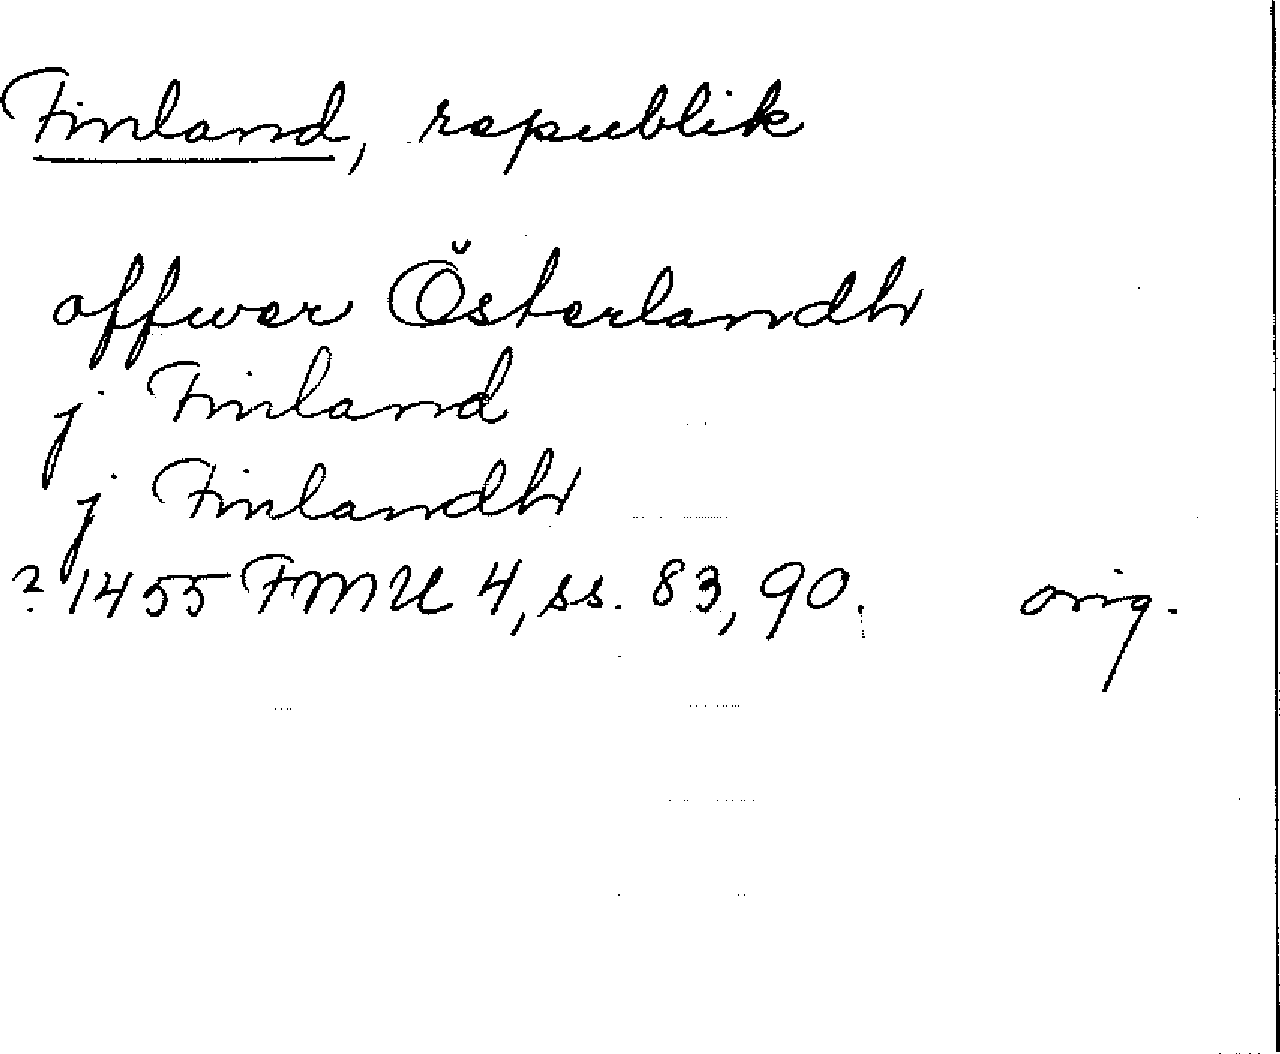 Finland, republik
offwer Österlandh
j Finland
j Finlandh
? 1455 FMU 4, ss. 83, 90. orig.